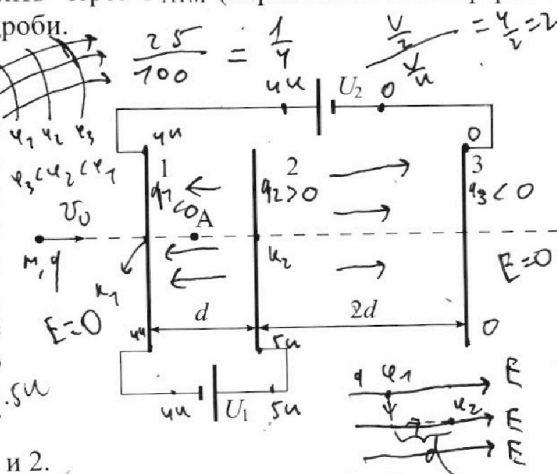 роби.
25/100 = 1/4
= 4/2 = 2
φ1 φ2 φ3
φ3 < φ2 < φ1
4U U2 0
4U 0
1 2 3
q1 < 0 q2 > 0 q3 < 0
v0
A
м, q
K1 K2
E=0 E=0
d 2d
4U 5U 0
4U U1 5U
.5U
q φ1 E
φ2 E
d E
и 2.